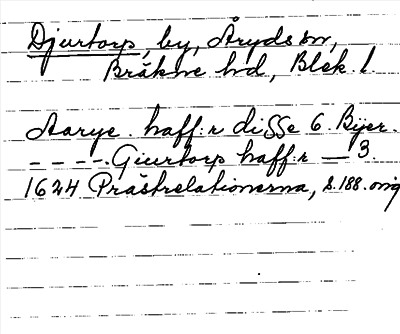 Djurtorp, by, Åryds sn,
Bräkne hd, Blek. l.
Aarye. haff:r disse 6. Byer.
- - - - Giurtorp haff:r — 3.
1624 Prästrelationerna, s. 188. orig